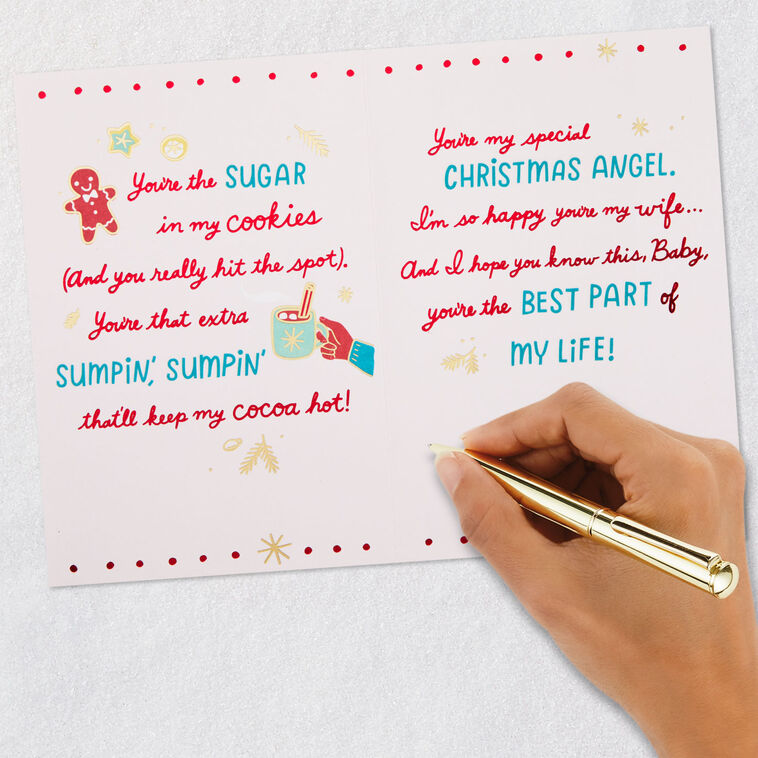 You're the SUGAR
in my cookies
(And you really hit the spot).
You're that extra
SUMPiN', SUMPiN'
that'll keep my cocoa hot!
You're my special
CHRiSTMAS ANGEL.
I'm so happy you're my wife...
And I hope you know this, Baby,
you're the BEST PART of
MY LiFE!